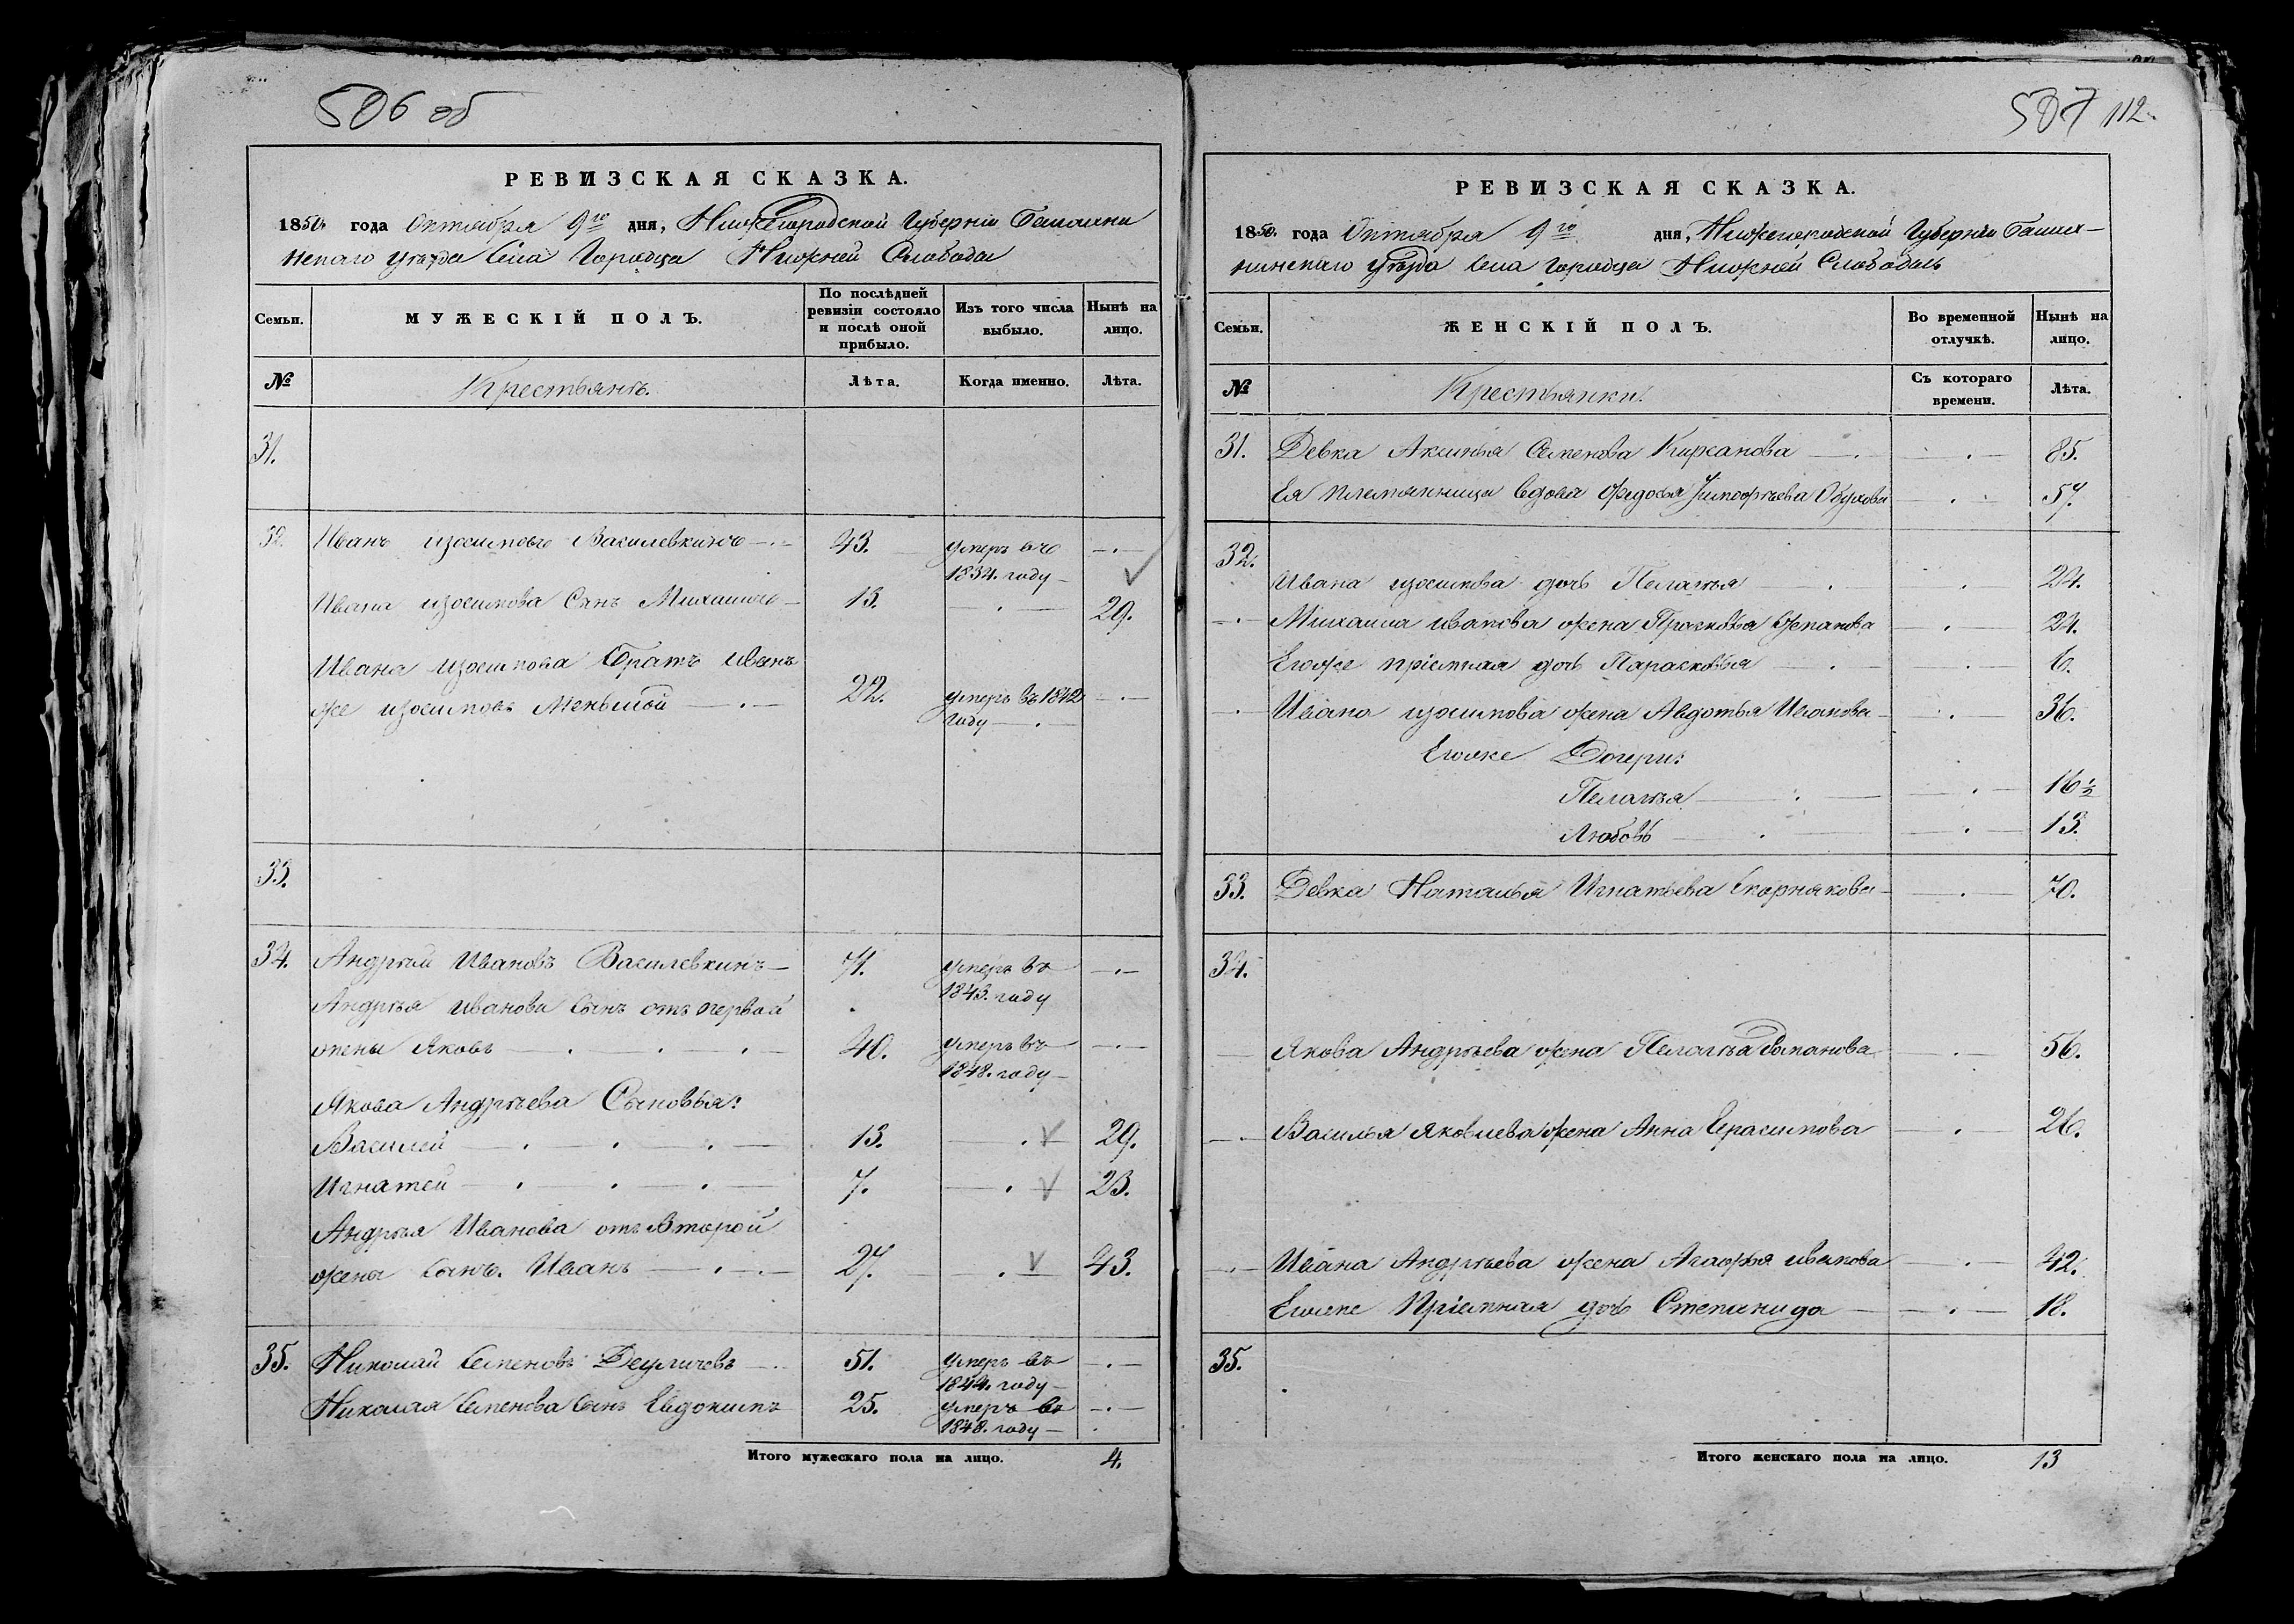 506 об
РЕВИЗСКАЯ СКАЗКА.
1850 года Октября 9го дня, Нижегородской Губерніи Балахни
нскаго уѣзда Села Городца Нижней Слободы
Семьи.
МУЖЕСКІЙ ПОЛЪ.
По послѣдней ревизіи состояло и послѣ оной прибыло.
Изъ того числа выбыло.
Нынѣ на лицо.
№
Крестьянъ.
Лѣта.
Когда именно.
Лѣта.
31.
32. Иванъ Изосимовъ Василевкинъ 43. умеръ въ
1834. году
Ивана Изосимова Сынъ Михаилъ 13. 29.
Ивана Изосимова братъ Иванъ
же Изосимовъ Меньшой 22. умеръ въ 1842
году
33.
34. Андрѣй Ивановъ Василевкинъ 71. умеръ въ
1843. году
Андрѣя Иванова Сынъ отъ первой
жены Яковъ 40. умеръ въ
1848. году
Якова Андрѣева Сыновья:
Василей 13. 29.
Игнатей 7. 23.
Андрѣя Иванова отъ Второй
жены Сынъ. Иванъ 27. 43.
35. Николай Семеновъ 51. умеръ въ
1844. году
Николая Семенова Сынъ Евдокимъ 25. умеръ въ
1848. году
Итого мужескаго пола на лицо. 4.
507 112.
РЕВИЗСКАЯ СКАЗКА.
1850. года Октября 9го дня, Нижегородской Губерніи Балах-
нинскаго уѣзда Села Городца Нижней Слободы
Семьи.
ЖЕНСКІЙ ПОЛЪ.
Во временной отлучкѣ.
Нынѣ на лицо.
№
Крестьянки.
Съ котораго времени.
Лѣта.
31. Девка Аксинья Семенова Кирсанова 85.
Ея племянница вдова Федосья Тимофѣева Обухова 57.
32.
Ивана Изосимова дочь Пелагѣя 24.
Михаила Иванова жена Прасковья Степанова 24.
Егоже пріемная дочь Парасковья 6.
Ивана Изосимова жена Авдотья Иванова 36.
Егоже Дочери:
Пелагѣя 16 ½
Любовь 13.
33. Девка Наталья Игнатьева Скорнякова 70.
34.
Якова Андрѣева жена Пелагѣя Романова 56.
Василья Яковлева жена Анна Герасимова 26.
Ивана Андрѣева жена Агафья Иванова 42.
Егоже Пріемная дочь Степанида 18.
35.
Итого женскаго пола на лицо. 13